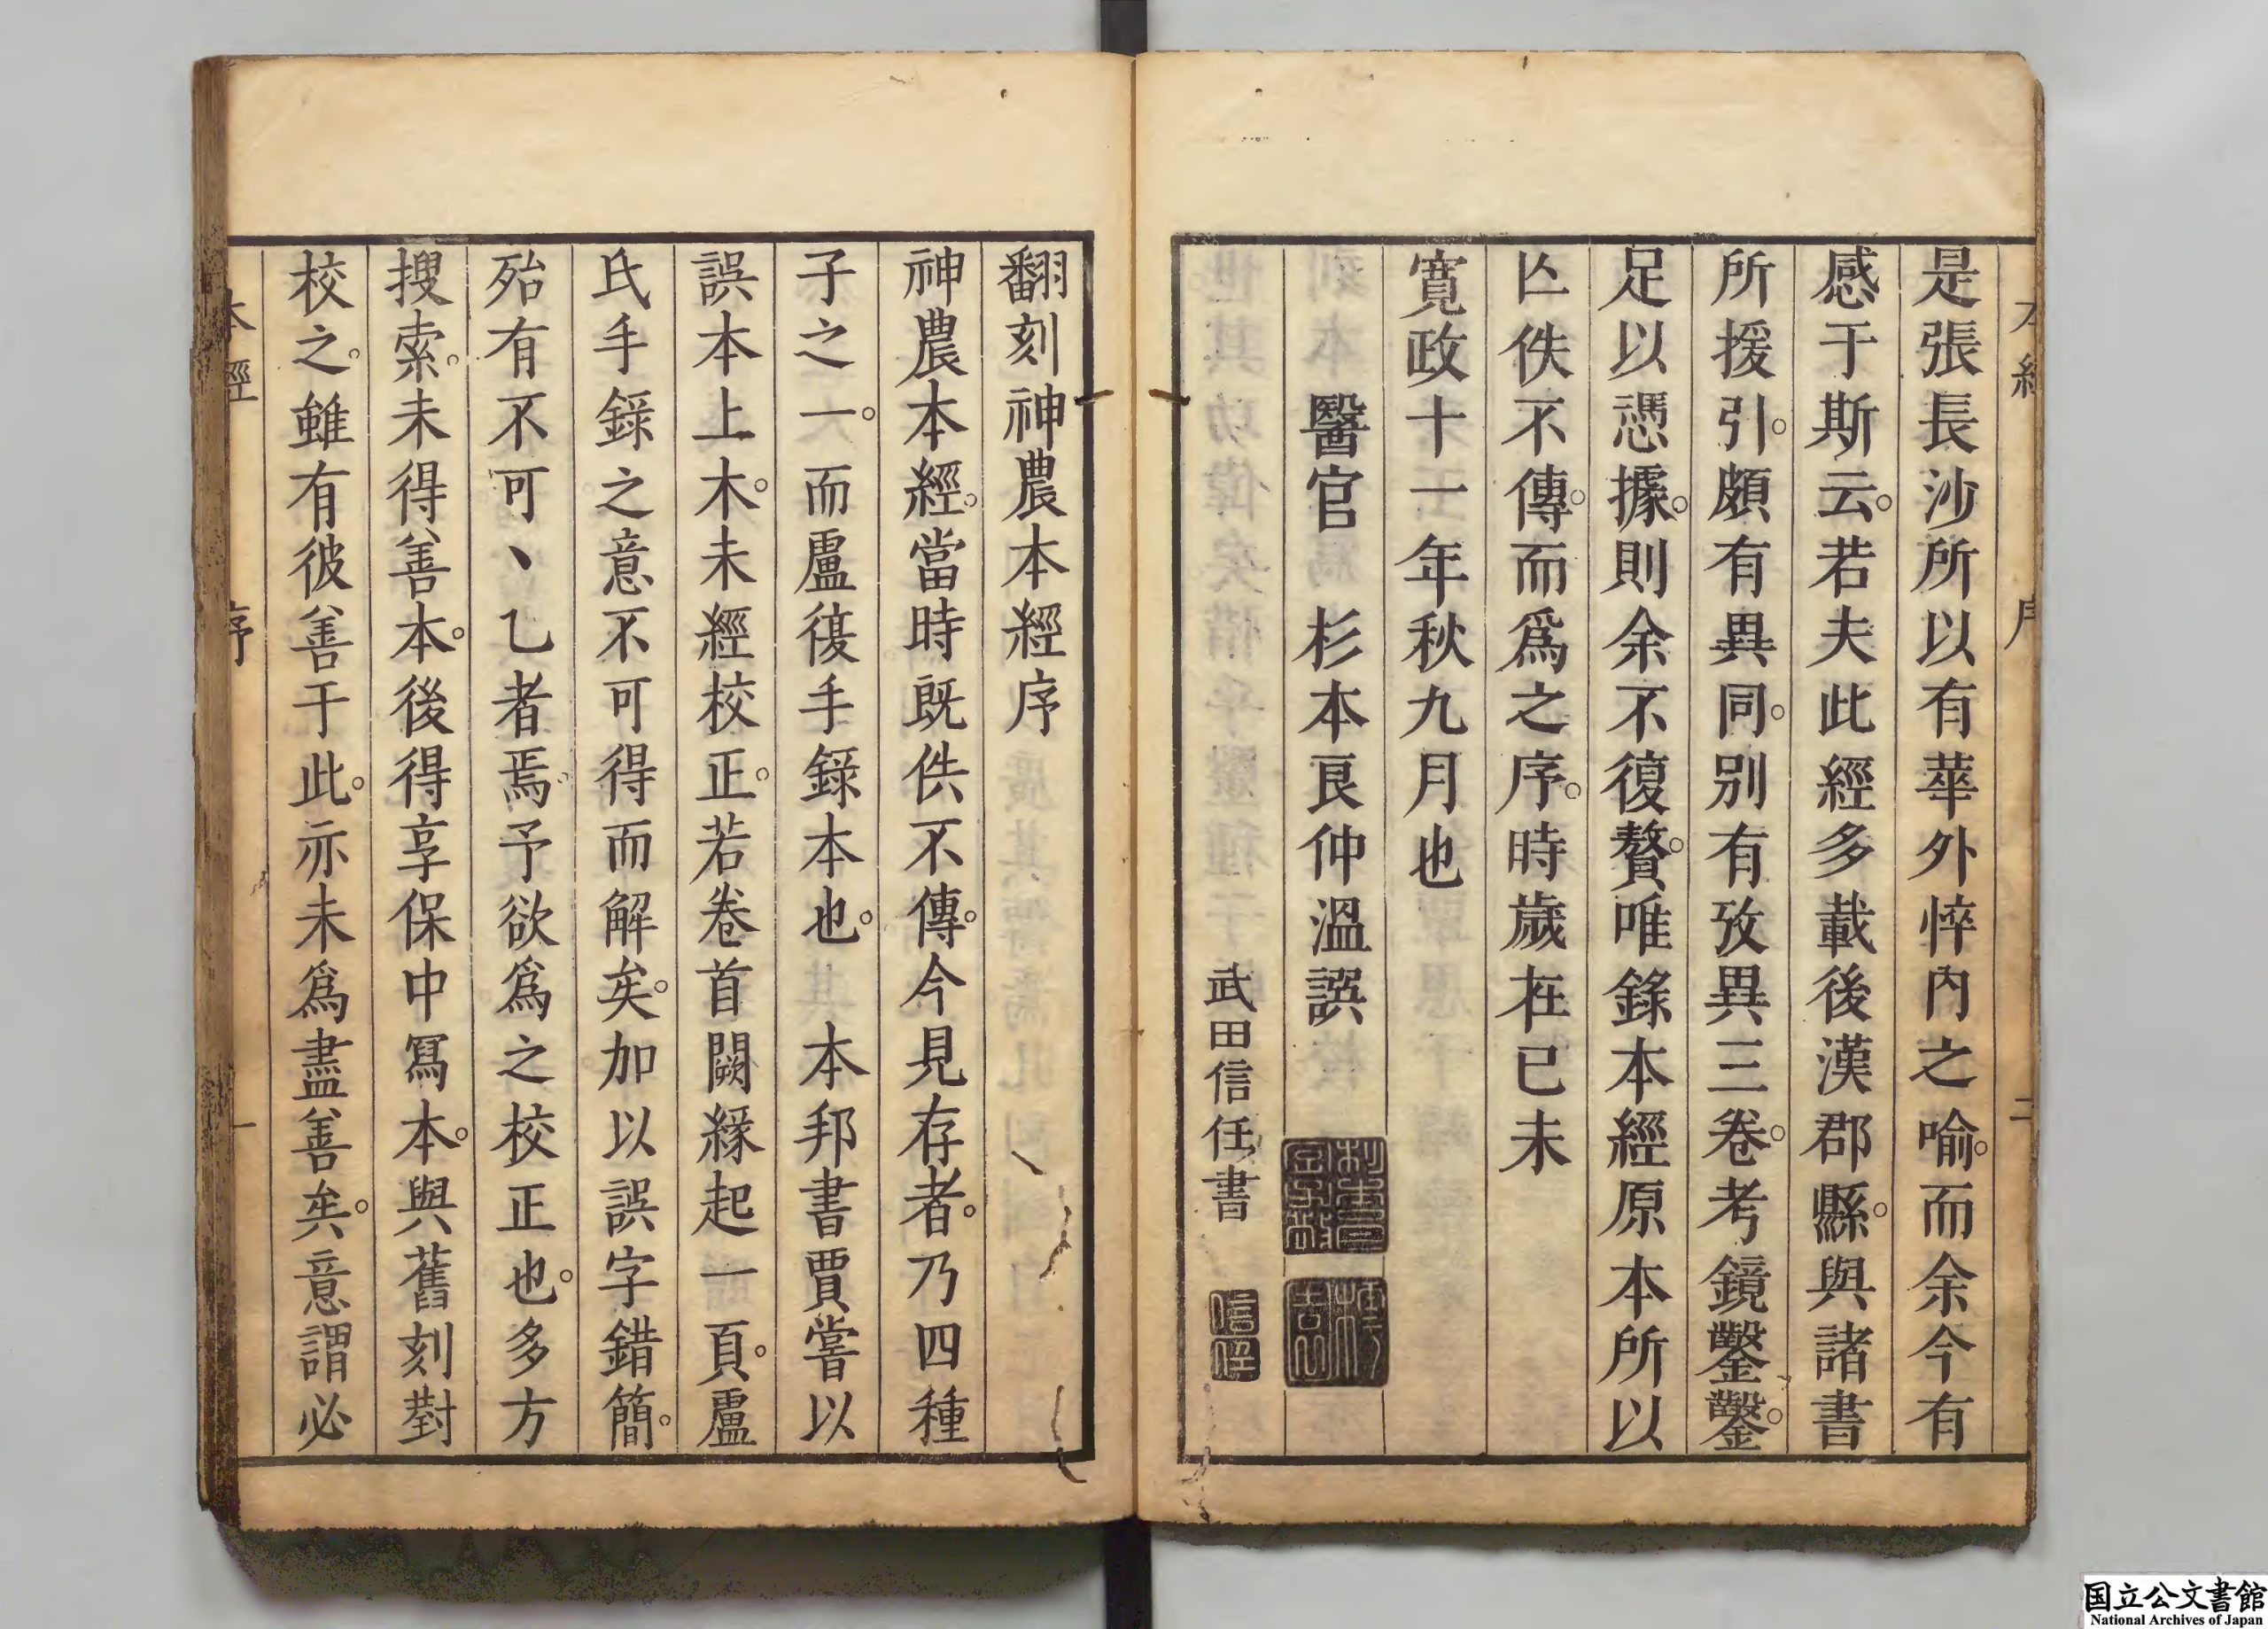 是張長沙所以有華外悴內之喻。而余今有
感于斯云。若夫此經多載後漢郡縣。與諸書
所援引。頗有異同。別有攷異三卷。考鏡鑿鑿。
足以憑據。則余不復贅。唯錄本經原本所以
亾佚不傳。而爲之序。時歲在已未
寛政十一年秋九月也
醫官 杉本良仲溫譔
武田信任書
信任
翻刻神農本經序
神農本經。當時既佚不傳。今見存者。乃四種
子之一。而盧復手錄本也。 本邦書賈嘗以
誤本上木。未經校正。若卷首闕緣起一頁。盧
氏手錄之意不可得而解矣。加以誤字錯簡。
殆有不可丶乙者焉。予欲爲之校正也。多方
搜索。未得善本。後得享保中冩本。與舊刻對
校之。雖有彼善于此。亦未爲盡善矣。意謂必
本經 序 一
国立公文書館
National Archives of Japan